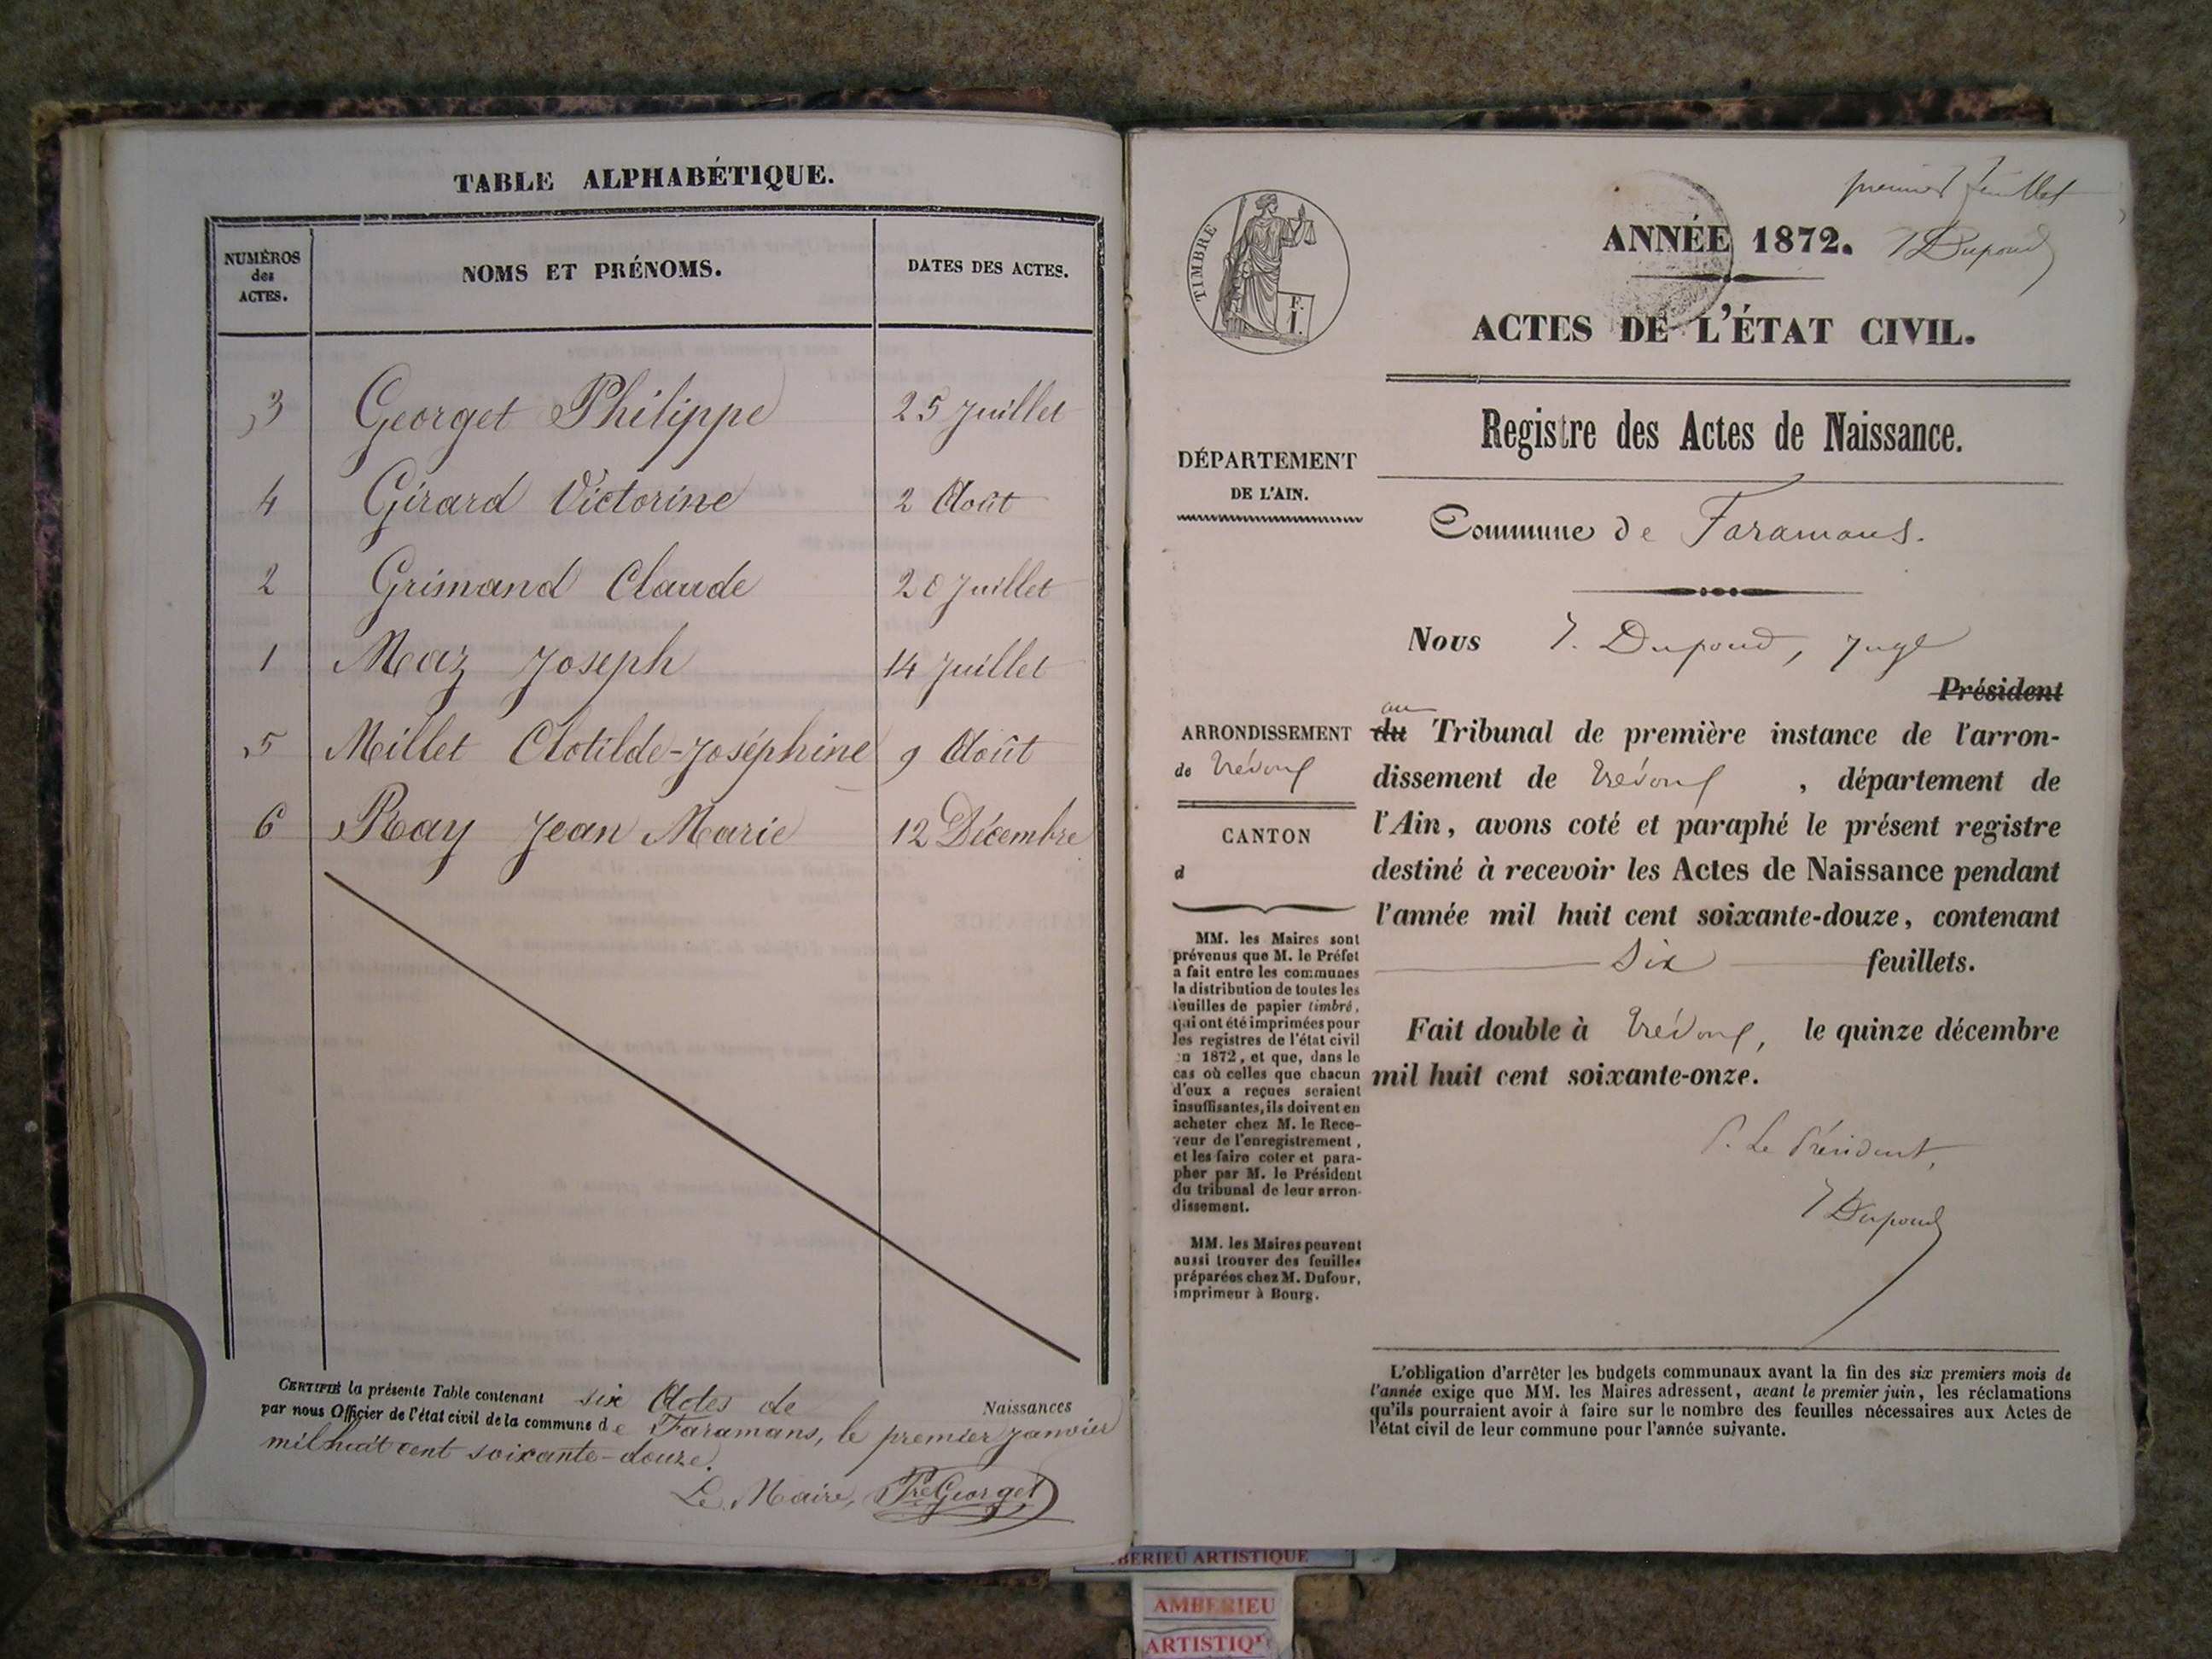 TABLE ALPHABÉTIQUE.
NUMÉROS des ACTES.
NOMS ET PRÉNOMS.
DATES DES ACTES.
3 Georget Philippe 25 Juillet
4 Girard Victorine 2 Août
2 Grimand Claude 20 Juillet
1 Maz Joseph 14 Juillet
5 Millet Clotilde-Joséphine 9 Août
6 Ray Jean Marie 12 Décembre
CERTIFIÉ la présente Table contenant six Actes de Naissances
par nous Officier de l'état civil de la commune de Faramans, le premier Janvier
mil huit cent soixante-douze.
Le Maire, Fre Georget
premier feuillet
J Dupond
TIMBRE
F.
I.
ANNÉE 1872.
ACTES DE L'ÉTAT CIVIL.
Registre des Actes de Naissance.
DÉPARTEMENT
DE L'AIN.
Commune de Faramans.
Nous J. Dupond, Juge
Président
au
du Tribunal de première instance de l'arron-
dissement de Trévoux, département de
l'Ain, avons coté et paraphé le présent registre
destiné à recevoir les Actes de Naissance pendant
l'année mil huit cent soixante-douze, contenant
six feuillets.
Fait double à Trévoux, le quinze décembre
mil huit cent soixante-onze.
P. Le Président,
J Dupond
ARRONDISSEMENT
de Trévoux
CANTON
d
MM. les Maires sont
prévenus que M. le Préfet
a fait entre les communes
la distribution de toutes les
feuilles de papier timbré,
qui ont été imprimées pour
les registres de l'état civil
en 1872, et que, dans le
cas où celles que chacun
d'eux a reçues seraient
insuffisantes, ils doivent en
acheter chez M. le Rece-
veur de l'enregistrement,
et les faire coter et para-
pher par M. le Président
du tribunal de leur arron-
dissement.
MM. les Maires peuvent
aussi trouver des feuilles
préparées chez M. Dufour,
imprimeur à Bourg.
L'obligation d'arrêter les budgets communaux avant la fin des six premiers mois de
l'année exige que MM. les Maires adressent, avant le premier juin, les réclamations
qu'ils pourraient avoir à faire sur le nombre des feuilles nécessaires aux Actes de
l'état civil de leur commune pour l'année suivante.
BERIEU ARTISTIQUE
AMBERIEU
ARTISTIQU